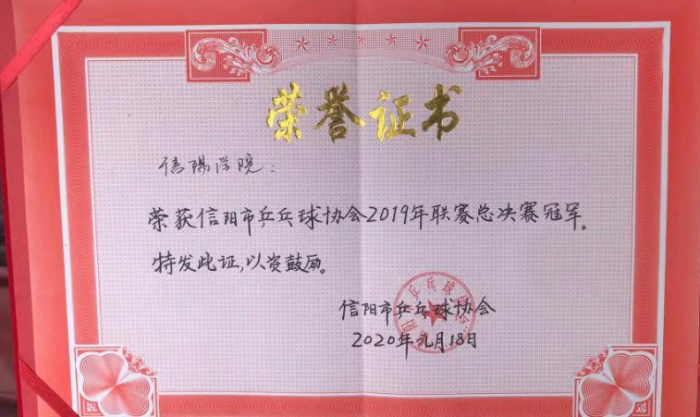 荣誉证书
信陽学院：
荣获信阳市乒乓球协会2019年联赛总决赛冠军。
特发此证，以资鼓励。
信阳市乒乓球协会
2020年元月18日